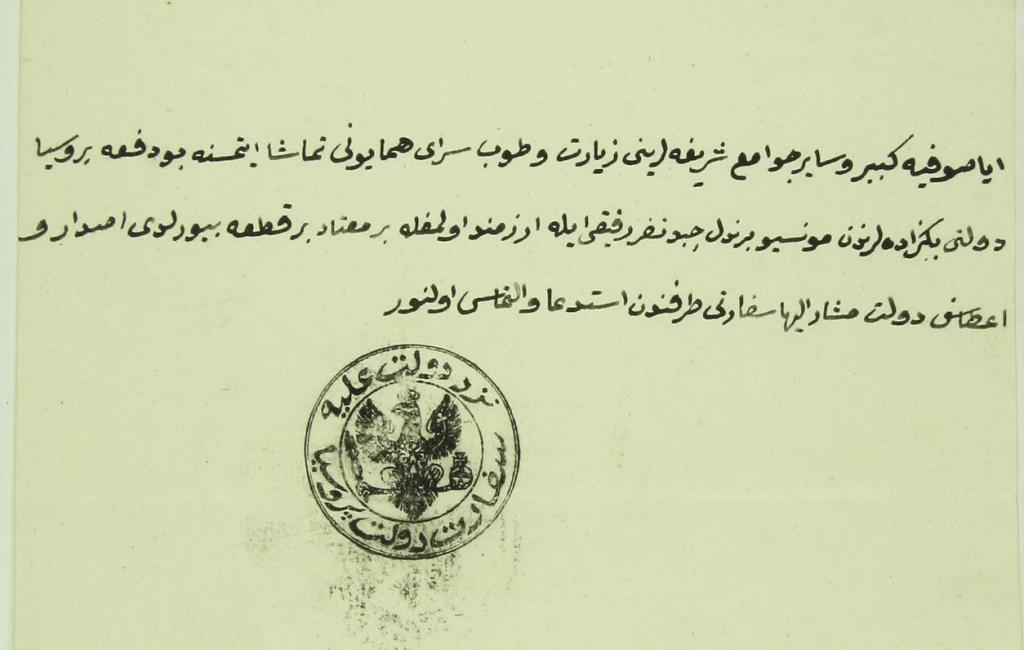 ایا صوفیه کبیر و سایر جوامع شریفه لرینی زیارت و طوب سرای همایونی تماشا ایتمسنه بو دفعه پروسیا
دولتی بکزاده لرندن مونسیو برنول جبو نفر رفیقی ایله ارزمند اولمغله بر معتاد بر قطعه بیورلدی اصدار و
اعطاسی دولت مشار الیها سفارتی طرفندن استدعا و التماس اولنور
نزد دولت علیه
سفارت دولت پروسیا